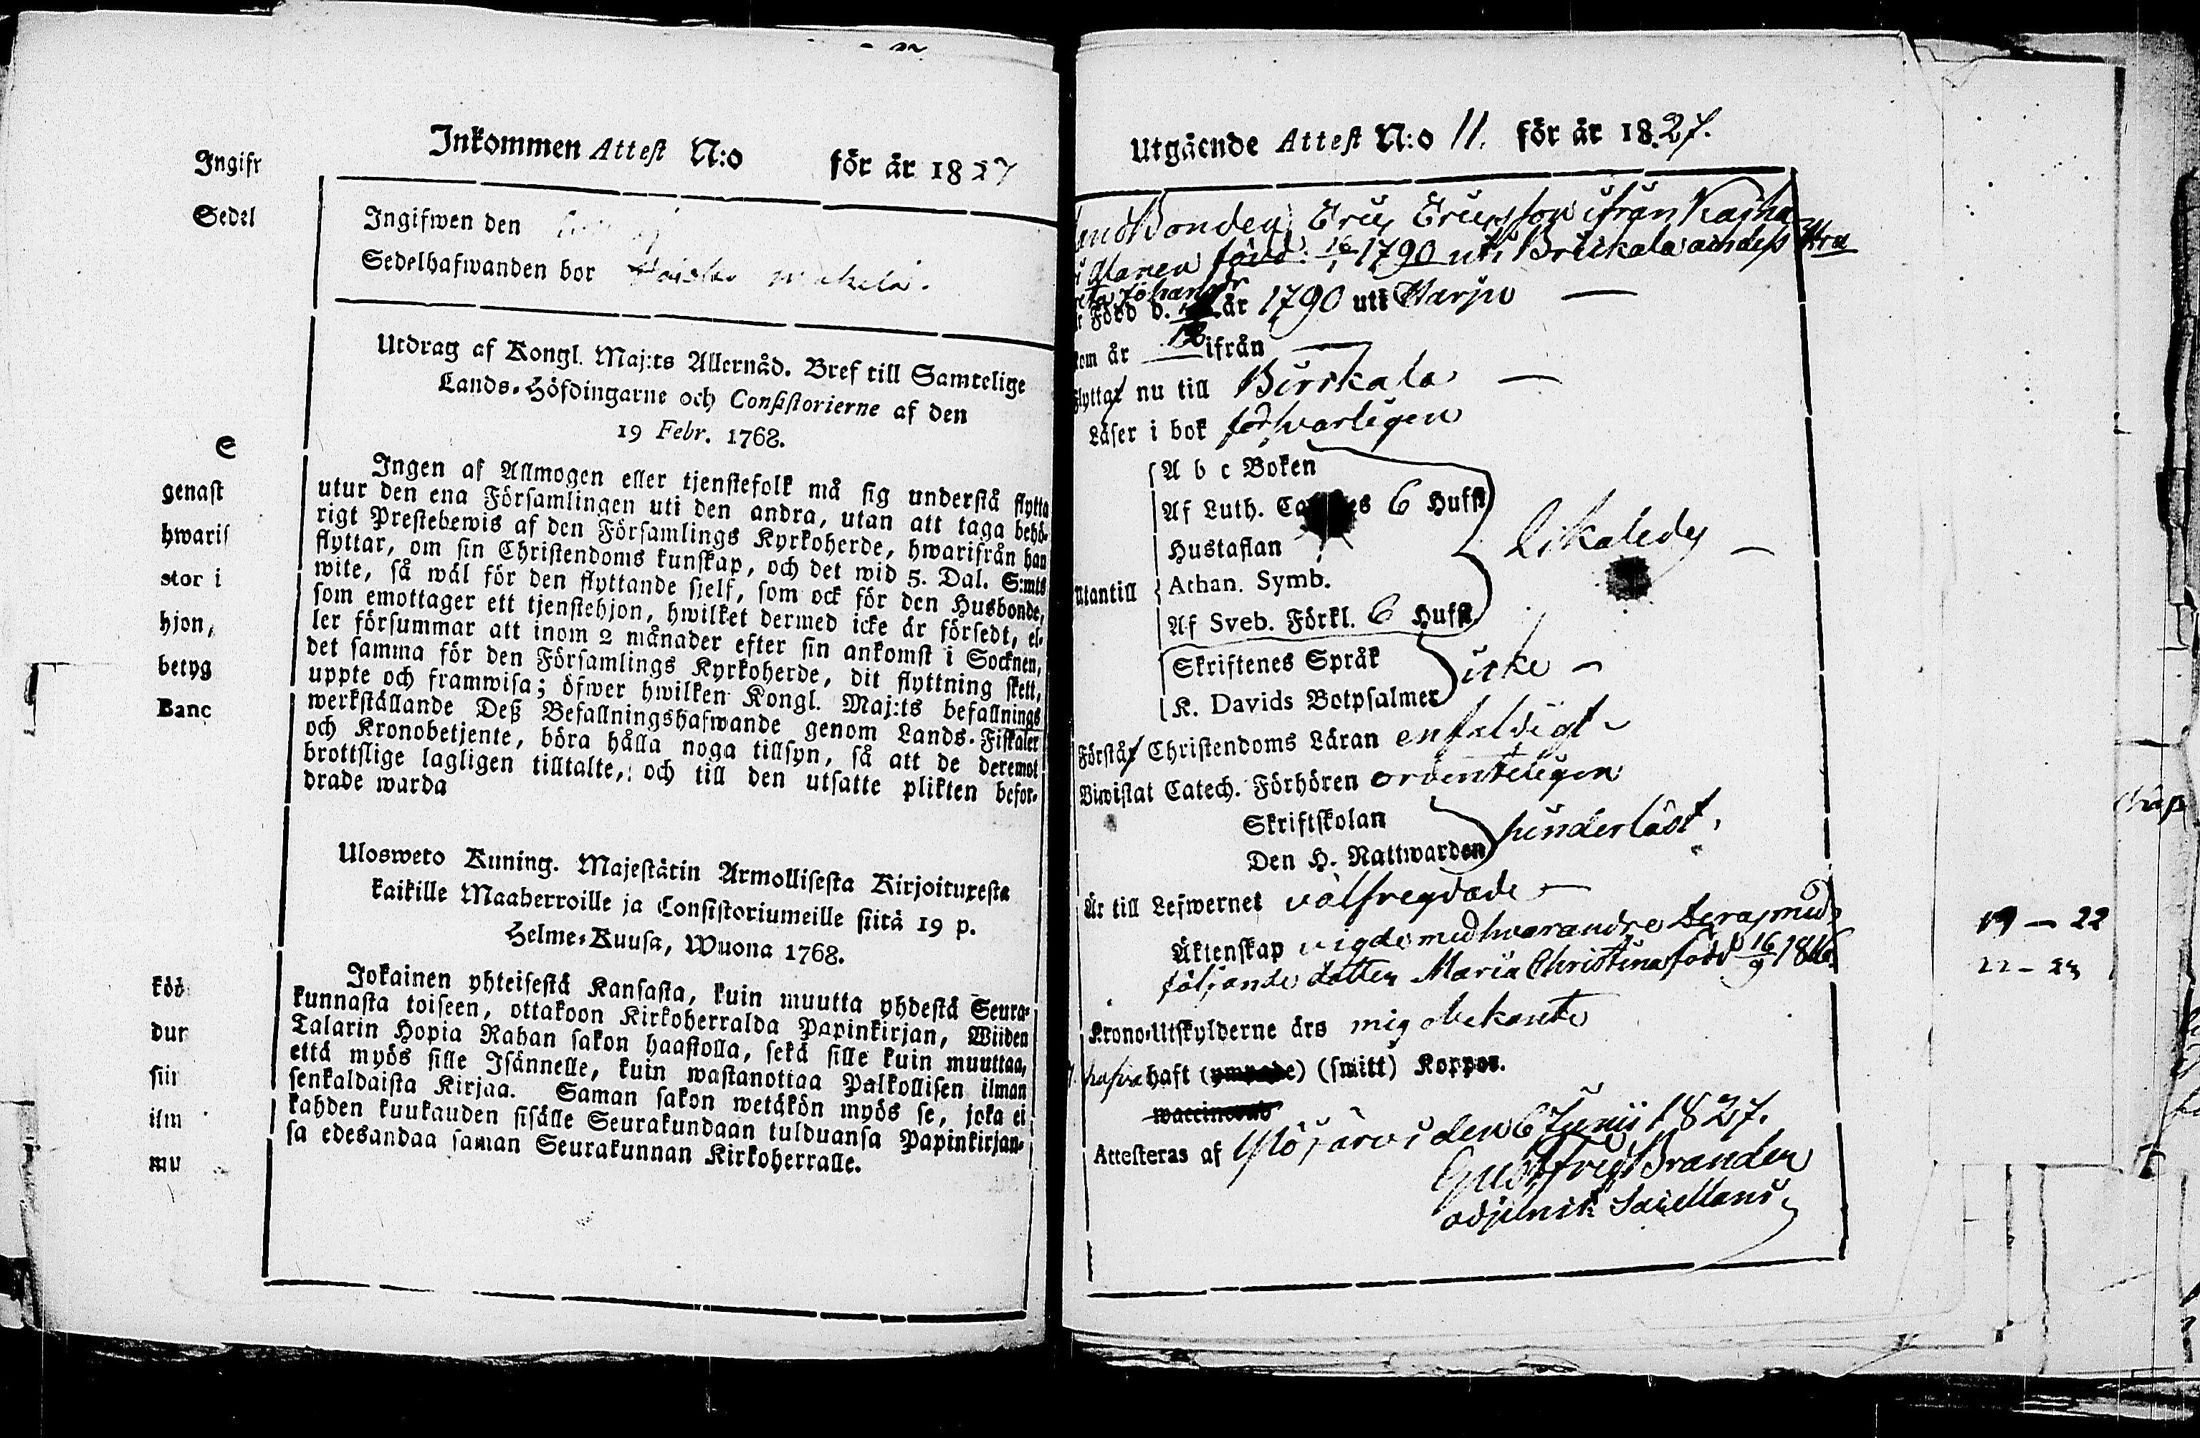 Ingifr
Sedel
S
genast
hwaris
stor i
hjon,
betyg
Banc
köö
dur
siir
ilm
mu
Inkommen Attest N:o för år 1827
Ingifwen den
Sedelhafwanden bor
Utdrag af Kongl. Maj:ts Allernåd. Bref till Samtelige
Lands-Höfdingarne och Consistorierne af den
19 Febr. 1768.
Ingen af Allmogen eller tjenstefolk må sig understå flytta
utur den ena Församlingen uti den andra, utan att taga behö-
rigt Prestebewis af den Församlings Kyrkoherde, hwarifrån han
flyttar, om sin Christendoms kunskap, och det wid 5. Dal. S:mts
wite, så wäl för den flyttande sjelf, som ock för den Husbonde,
som emottager ett tjenstehjon, hwilket dermed icke är försedt, el-
ler försummar att inom 2 månader efter sin ankomst i Socknen,
det samma för den Församlings Kyrkoherde, dit flyttning skett,
uppte och framwisa; öfwer hwilken Kongl. Maj:ts befallnings
werkställande Deß Befallningshafwande genom Lands-Fiskaler
och Kronobetjente, böra hålla noga tillsyn, så att de deremot
brottslige lagligen tilltalte, och till den utsatte plikten befor-
drade warda
Ulosweto Kuning. Majestätin Armollisesta Kirjoituxesta
kaikille Maaherroille ja Consistoriumeille siitä 19 p.
Helme-Kuusa, Wuona 1768.
Jokainen yhteisestä Kansasta, kuin muutta yhdestä Seura-
kunnasta toiseen, ottakoon Kirkoherralda Papinkirjan, Wiiden
Talarin Hopia Rahan sakon haastolla, sekä sille kuin muuttaa,
että myös sille Isännelle, kuin wastanottaa Palkollisen ilman
senkaldaista Kirjaa. Saman sakon wetäkön myös se, joka ei
kahden kuukauden sisälle Seurakundaan tulduansa Papinkirjan-
sa edesandaa saman Seurakunnan Kirkoherralle.
Utgående Attest N:o 11. för år 1827.
Bonden Eric Ericsson ifrån
född 16/1 1790 uti Birkala
Född d. år 1790 uti Harju
kom år ifrån
Flyttar nu till Birkala
Läser i bok försvarligen
A b c Boken
Af Luth. 6 Huff
Hustaflan
Athan. Symb.
Utantill
Likaledes
Af Sveb. Förkl. 6 Huff
Skriftenes Språk
icke
K. Davids Botpsalmer
Förstår Christendoms Läran enfaldigt
Biwistat Catech. Förhören ordenteligen
Skriftskolan
Den H. Nattwarden
Är till Lefwernet välfregdade
Äktenskap vigde med hvarandre
följande dotter Maria Christina född 16/9 1816
Krono-Utskylderne ärs mig obekante
hafva haft (ympade) (smitt) Koppor.
waccinerad
Attesteras af Ylöjärvi den 6 Junii 1827.
Branden
adjunct
19 – 22
22 – 23